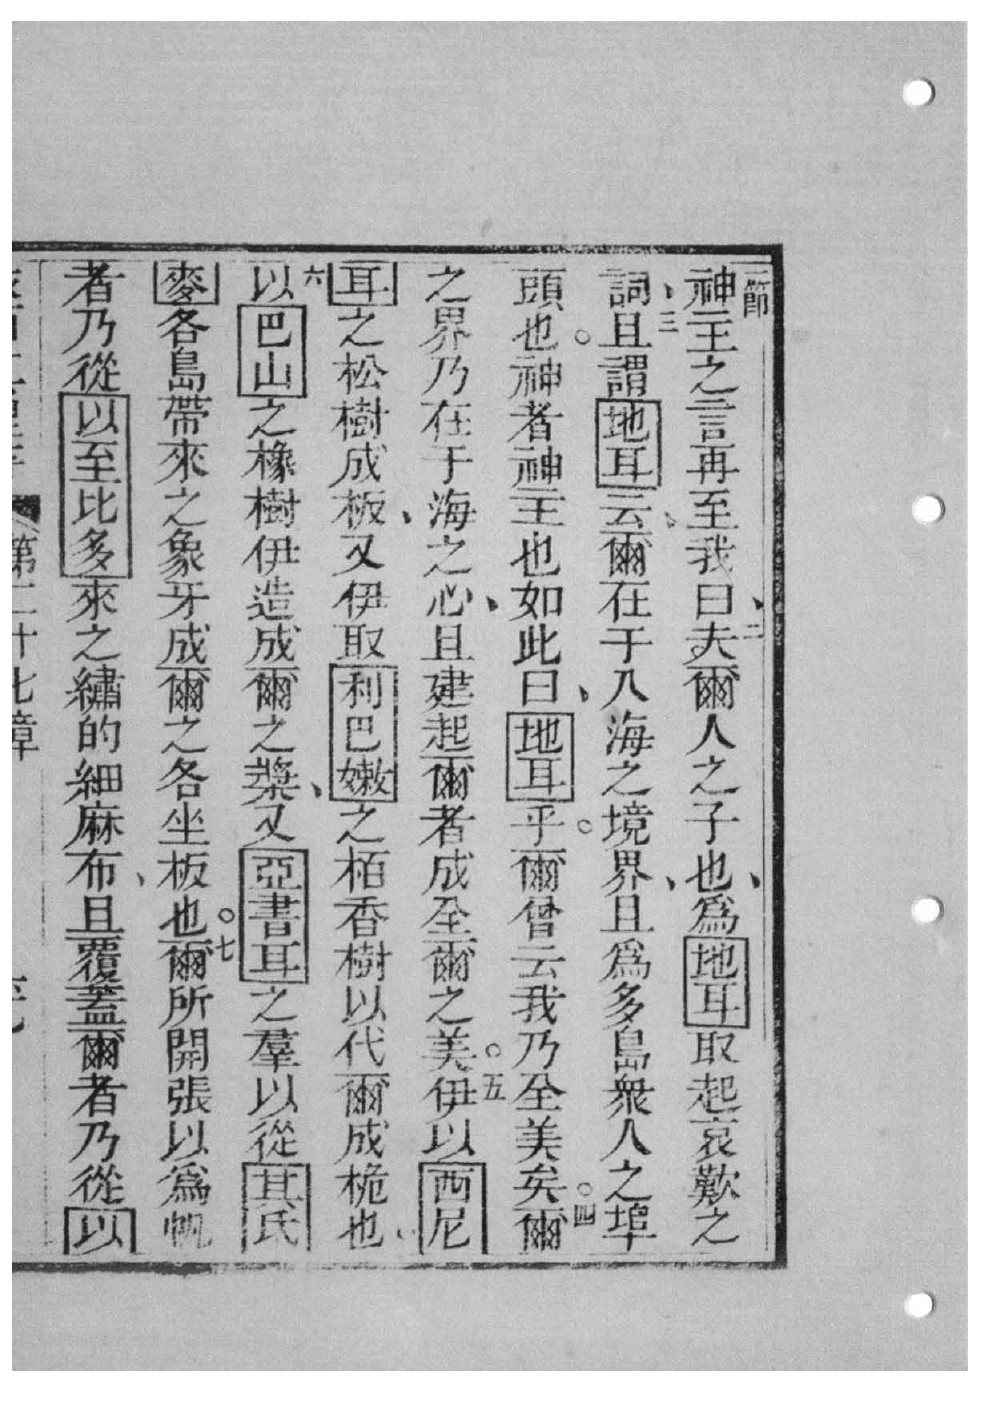 一節神主之言再至我曰、二夫爾人之子也、爲地耳取起哀歎之
詞、三且謂地耳云、爾在于入海之境界、且爲多島衆人之埠
頭也。神者神主也如此曰、地耳乎。爾曾云我乃全美矣。四爾
之界乃在于海之心、且建起爾者成全爾之美。五伊以西尼
耳之松樹成板、又伊取利巴嫩之栢香樹以代爾成桅也、
六以巴山之橡樹伊造成爾之槳、又亞書耳之羣以從其氏
麥各島帶來之象牙成爾之各坐板也。七爾所開張以爲帆
者乃從以至比多來之繡的細麻布、且覆蓋爾者乃從以
第二十七章